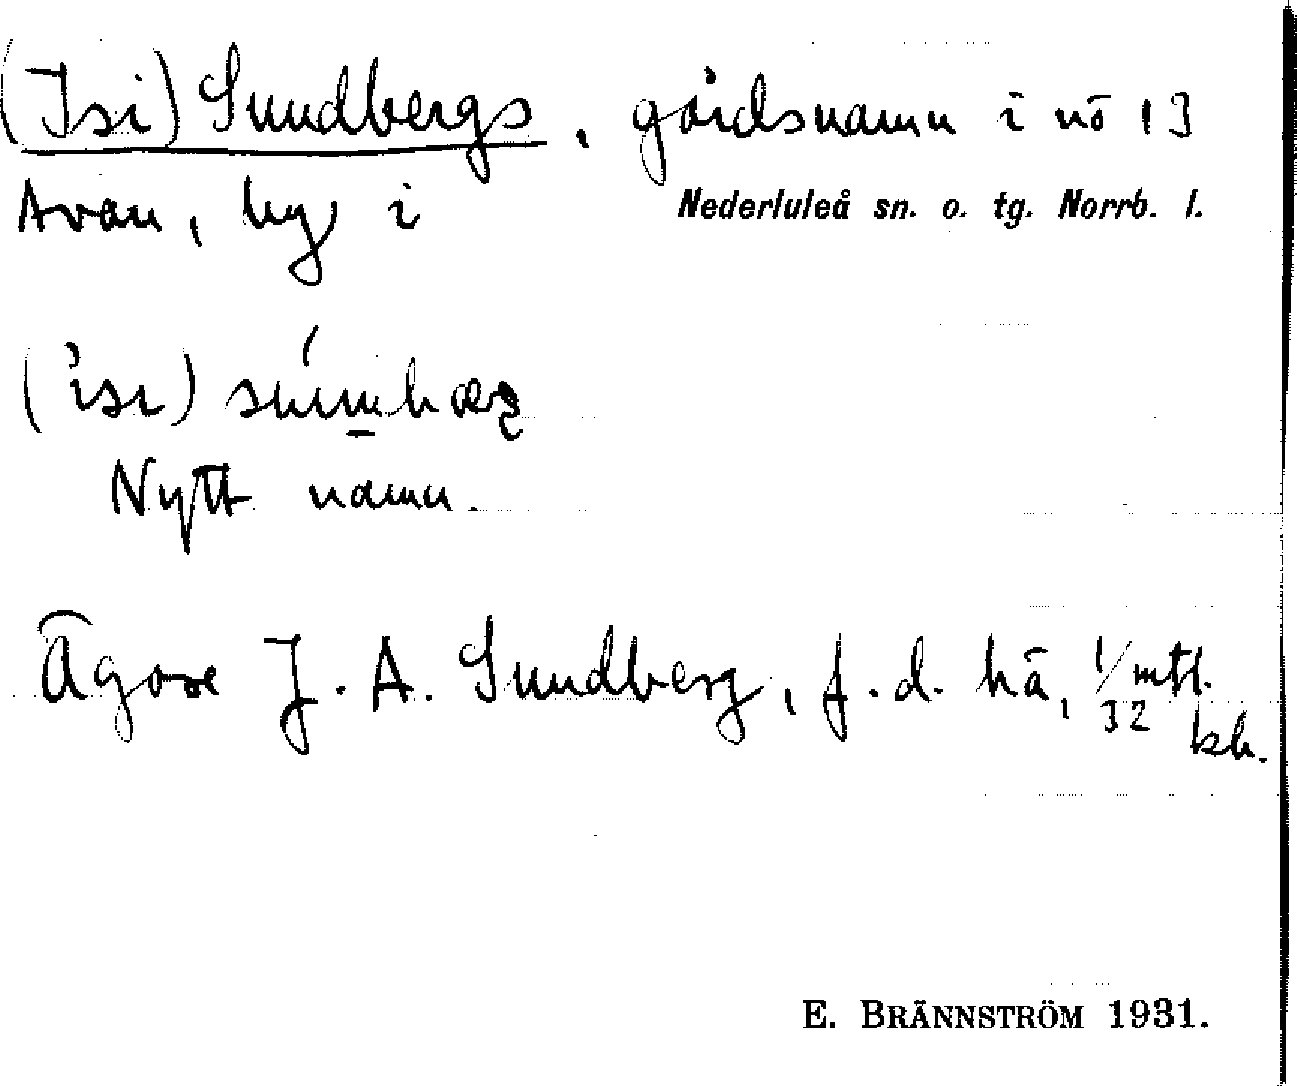 (Isi) Sundbergs, gårdsnamn i nö 13
Avan, by i Nederluleå sn. o. tg. Norrb. l.
Nytt namn.
Ägare J. A. Sundberg, f.d. hä, 1/32 mtl.
kh.
E. BRÄNNSTRÖM 1931.